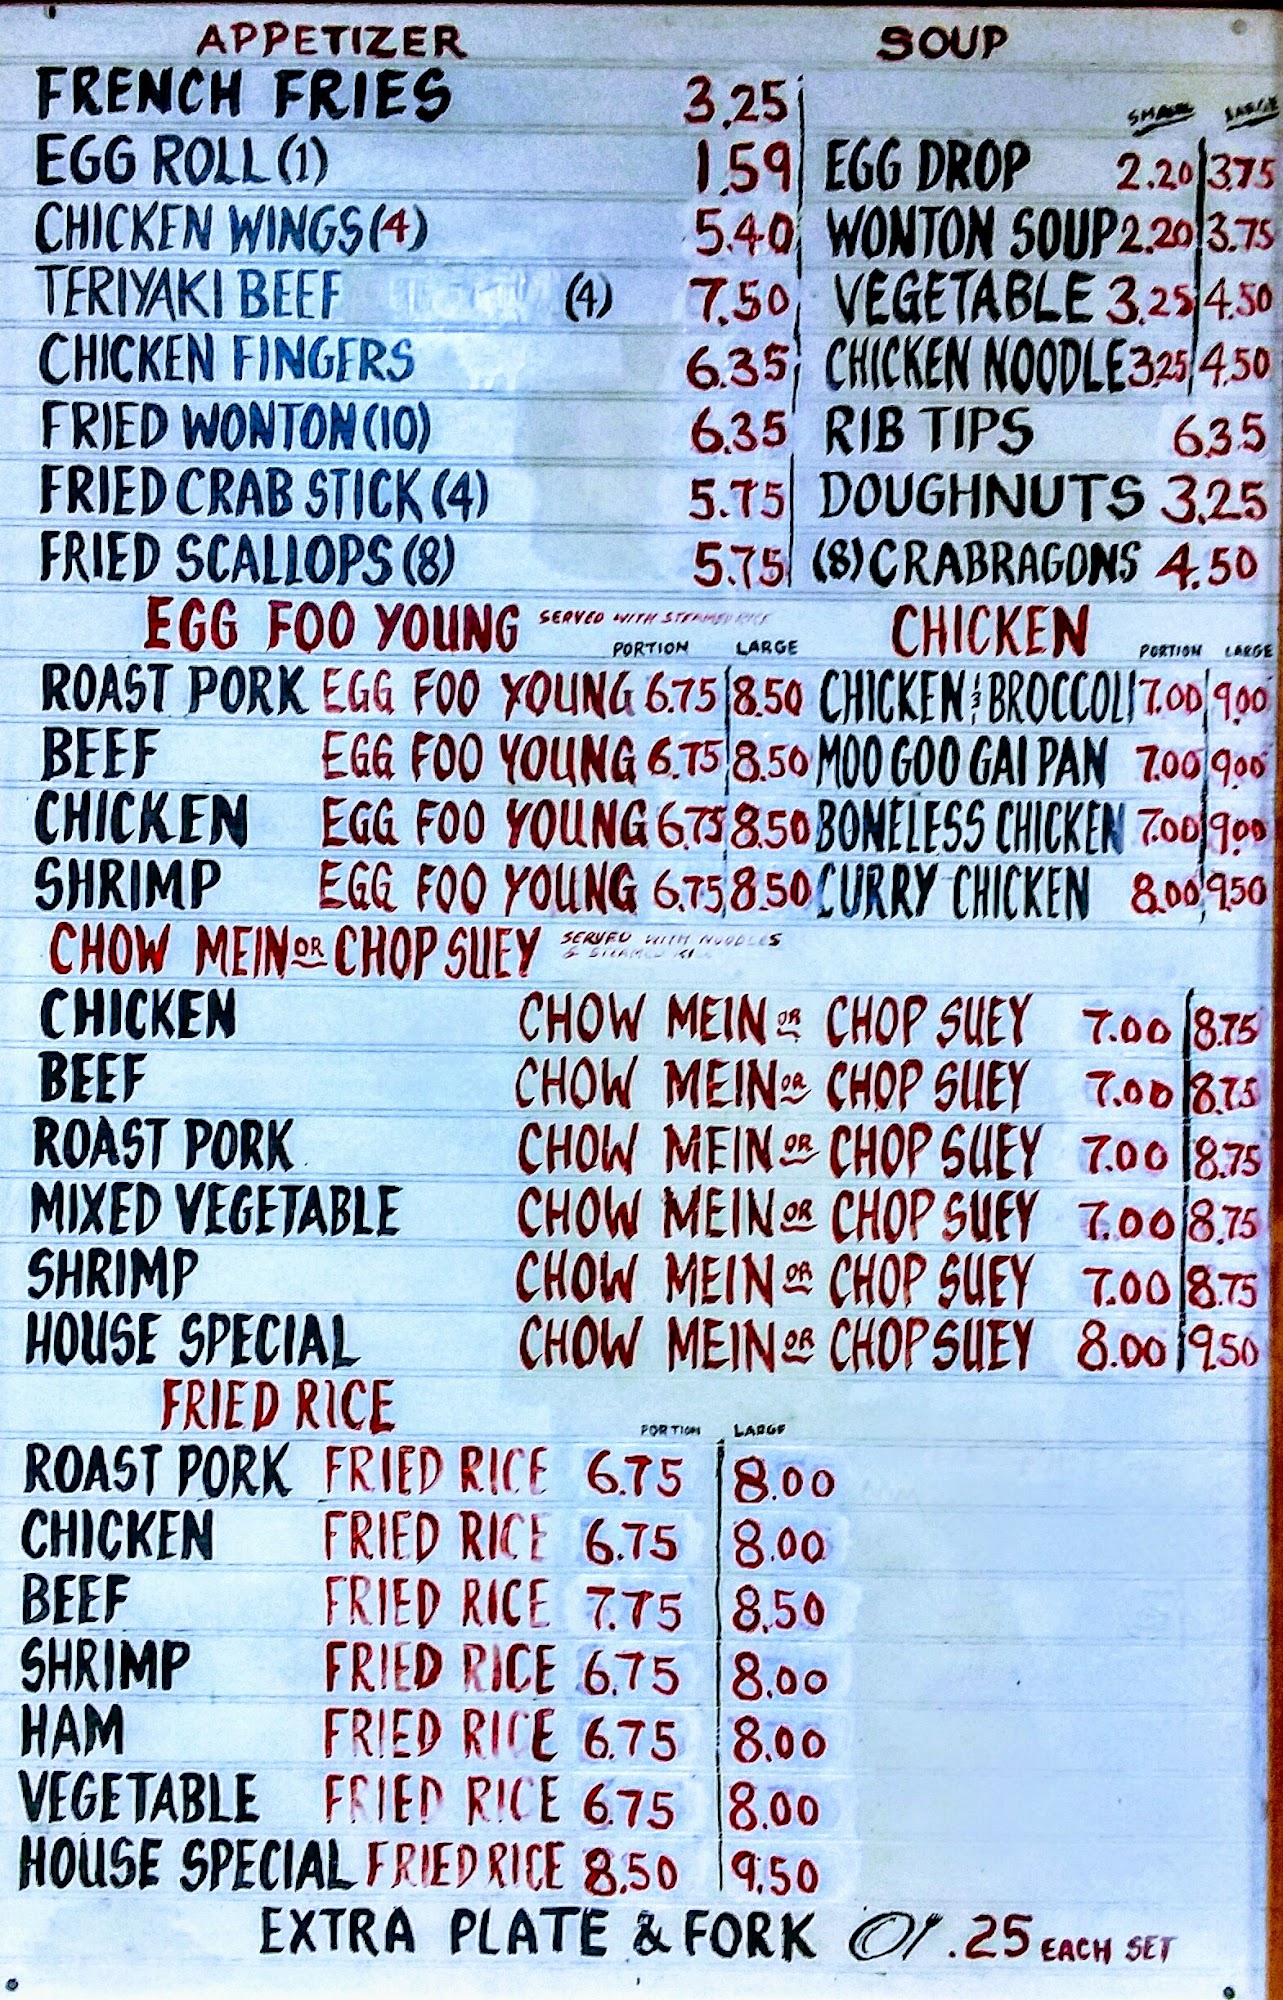 APPETIZER
FRENCH FRIES 3.25
EGG ROLL (1) 1.59
CHICKEN WINGS (4) 5.40
TERIYAKI BEEF (4) 7.50
CHICKEN FINGERS 6.35
FRIED WONTON (10) 6.35
FRIED CRAB STICK (4) 5.75
FRIED SCALLOPS (8) 5.75
SOUP
SMALL LARGE
EGG DROP 2.20 3.75
WONTON SOUP 2.20 3.75
VEGETABLE 3.25 4.50
CHICKEN NOODLE 3.25 4.50
RIB TIPS 6.35
DOUGHNUTS 3.25
(8) CRABRAGONS 4.50
EGG FOO YOUNG SERVED WITH STEAMED RICE
PORTION LARGE
ROAST PORK EGG FOO YOUNG 6.75 8.50
BEEF EGG FOO YOUNG 6.75 8.50
CHICKEN EGG FOO YOUNG 6.75 8.50
SHRIMP EGG FOO YOUNG 6.75 8.50
CHICKEN
PORTION LARGE
CHICKEN & BROCCOLI 7.00 9.00
MOO GOO GAI PAN 7.00 9.00
BONELESS CHICKEN 7.00 9.00
CURRY CHICKEN 8.00 9.50
CHOW MEIN OR CHOP SUEY SERVED WITH NOODLES
& STEAMED
CHICKEN CHOW MEIN OR CHOP SUEY 7.00 8.75
BEEF CHOW MEIN OR CHOP SUEY 7.00 8.75
ROAST PORK CHOW MEIN OR CHOP SUEY 7.00 8.75
MIXED VEGETABLE CHOW MEIN OR CHOP SUEY 7.00 8.75
SHRIMP CHOW MEIN OR CHOP SUEY 7.00 8.75
HOUSE SPECIAL CHOW MEIN OR CHOP SUEY 8.00 9.50
FRIED RICE
PORTION LARGE
ROAST PORK FRIED RICE 6.75 8.00
CHICKEN FRIED RICE 6.75 8.00
BEEF FRIED RICE 7.75 8.50
SHRIMP FRIED RICE 6.75 8.00
HAM FRIED RICE 6.75 8.00
VEGETABLE FRIED RICE 6.75 8.00
HOUSE SPECIAL FRIED RICE 8.50 9.50
EXTRA PLATE & FORK .25 EACH SET